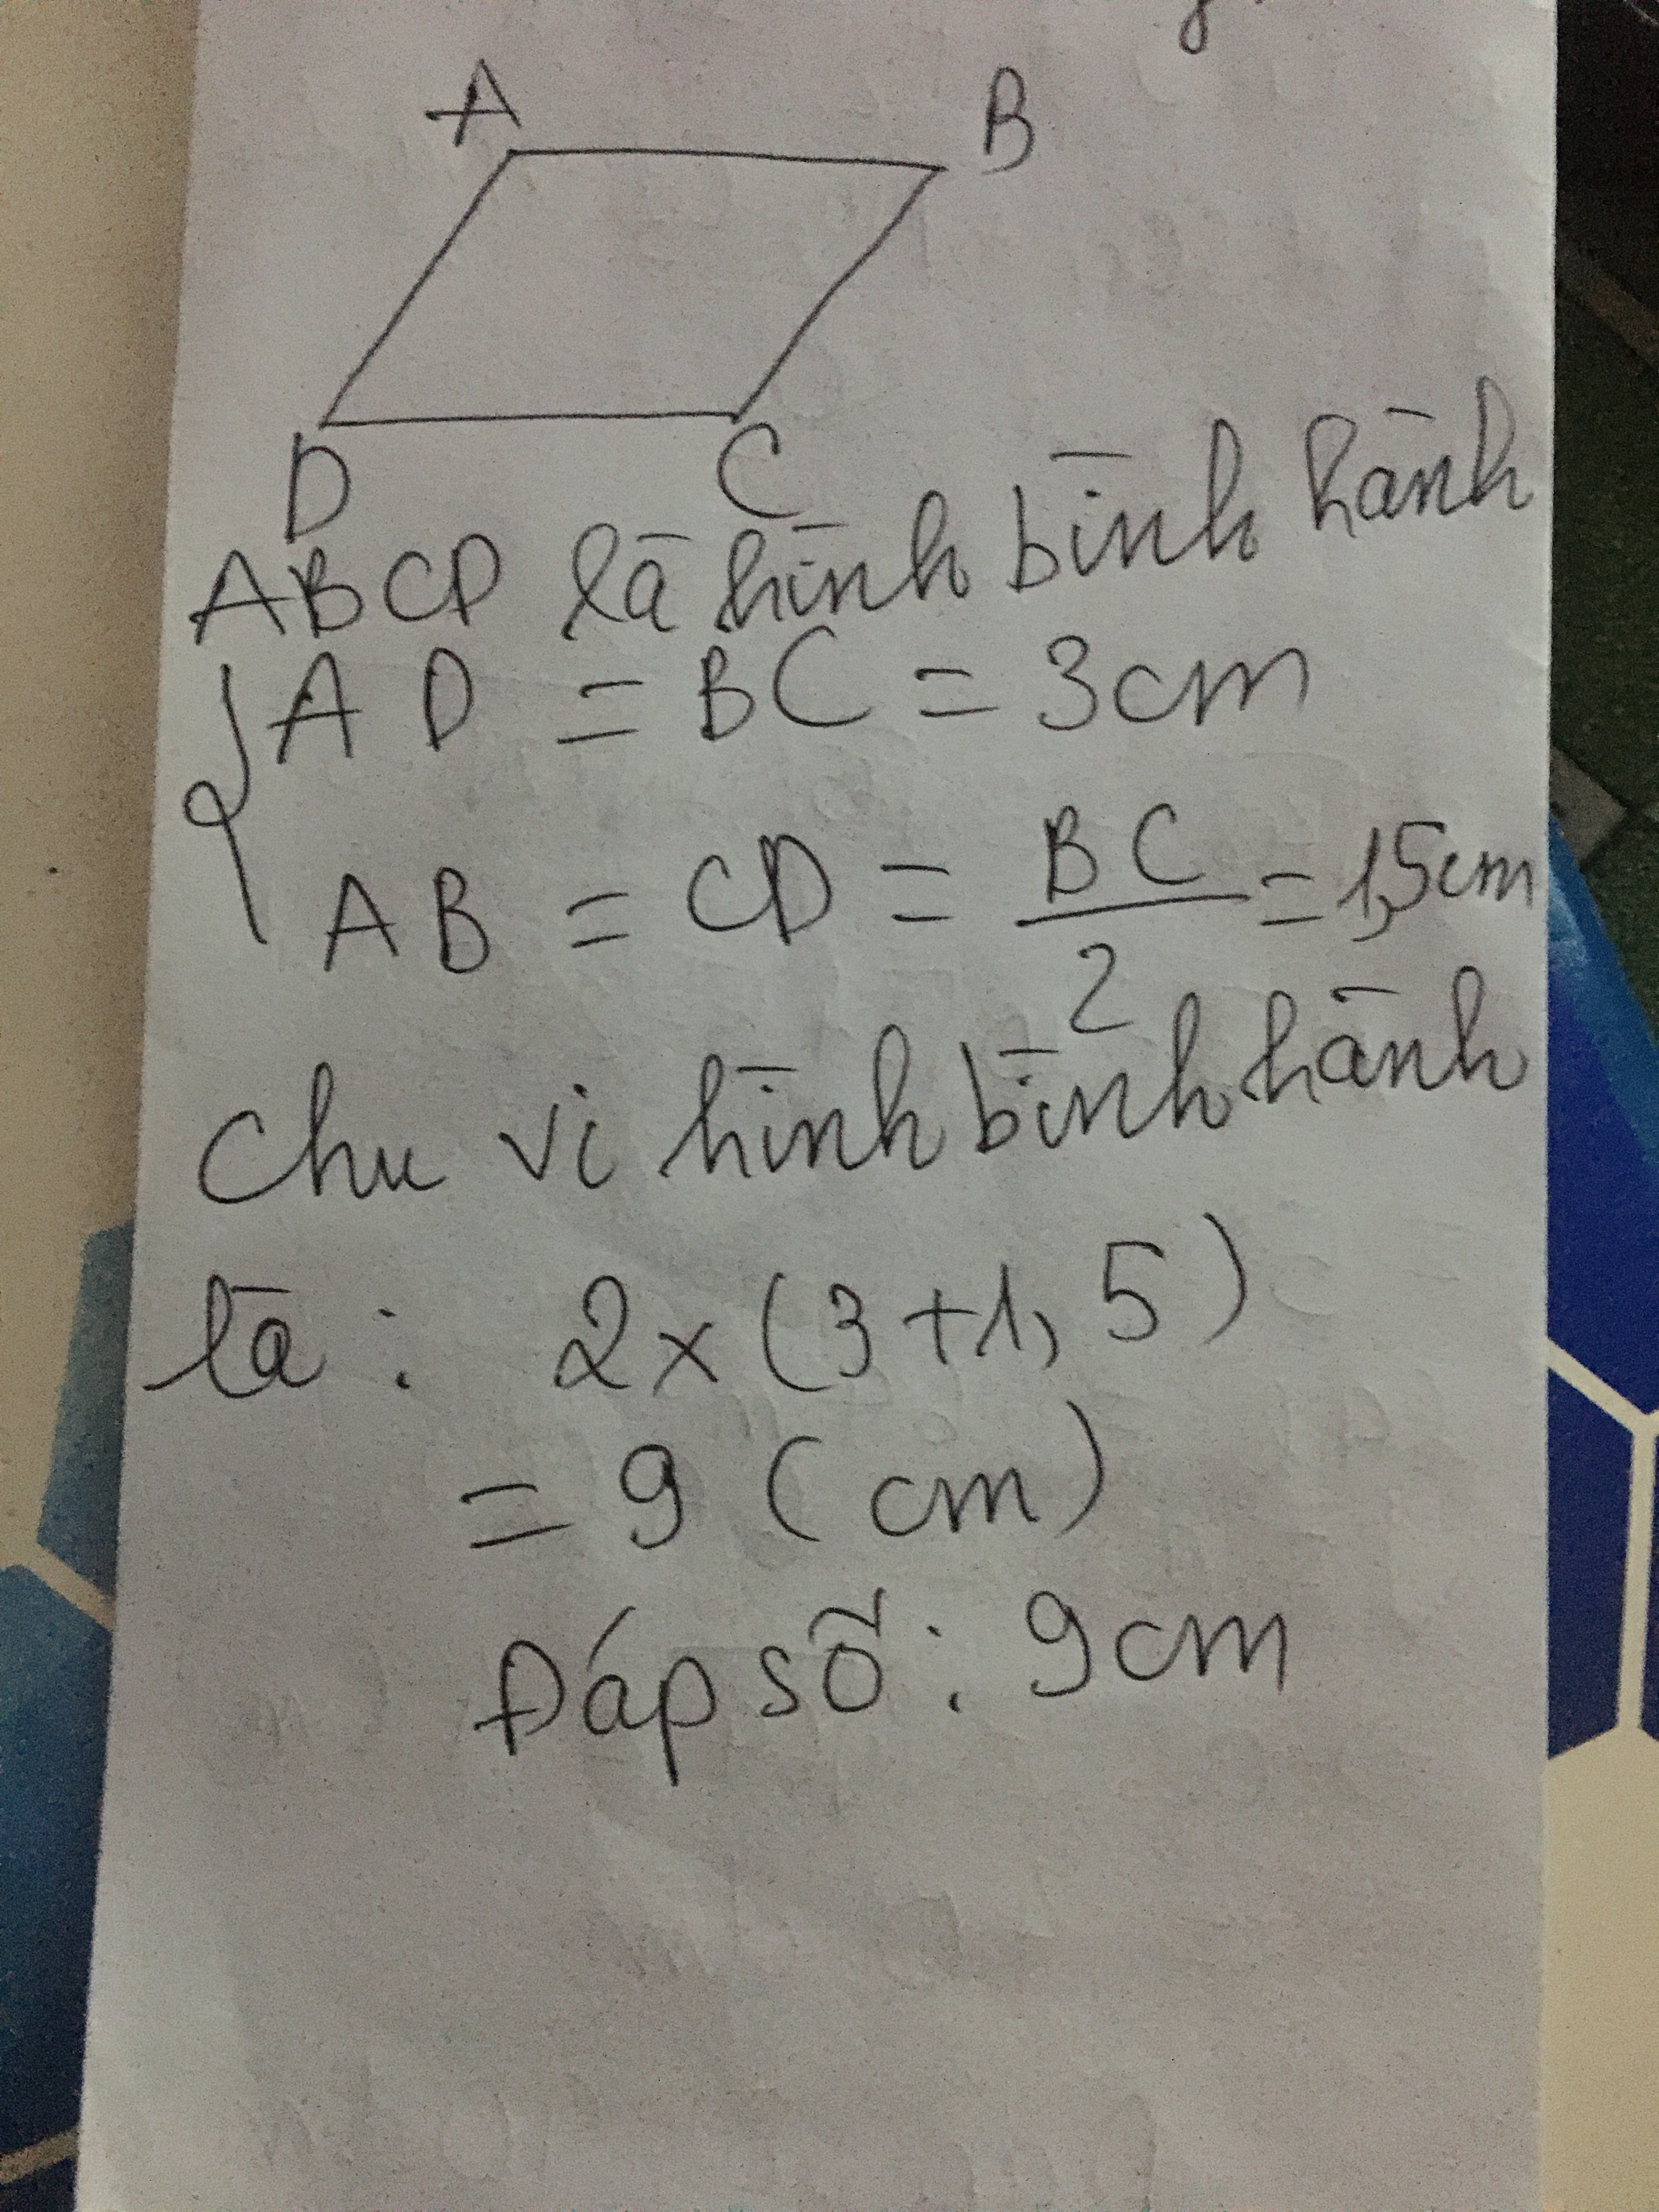 A B
D C
ABCD là hình bình hành
AD = BC = 3cm
AB = CD = BC/2 = 1,5cm
Chu vi hình bình hành
là: 2x(3+1,5)
= 9 (cm)
Đáp số: 9cm